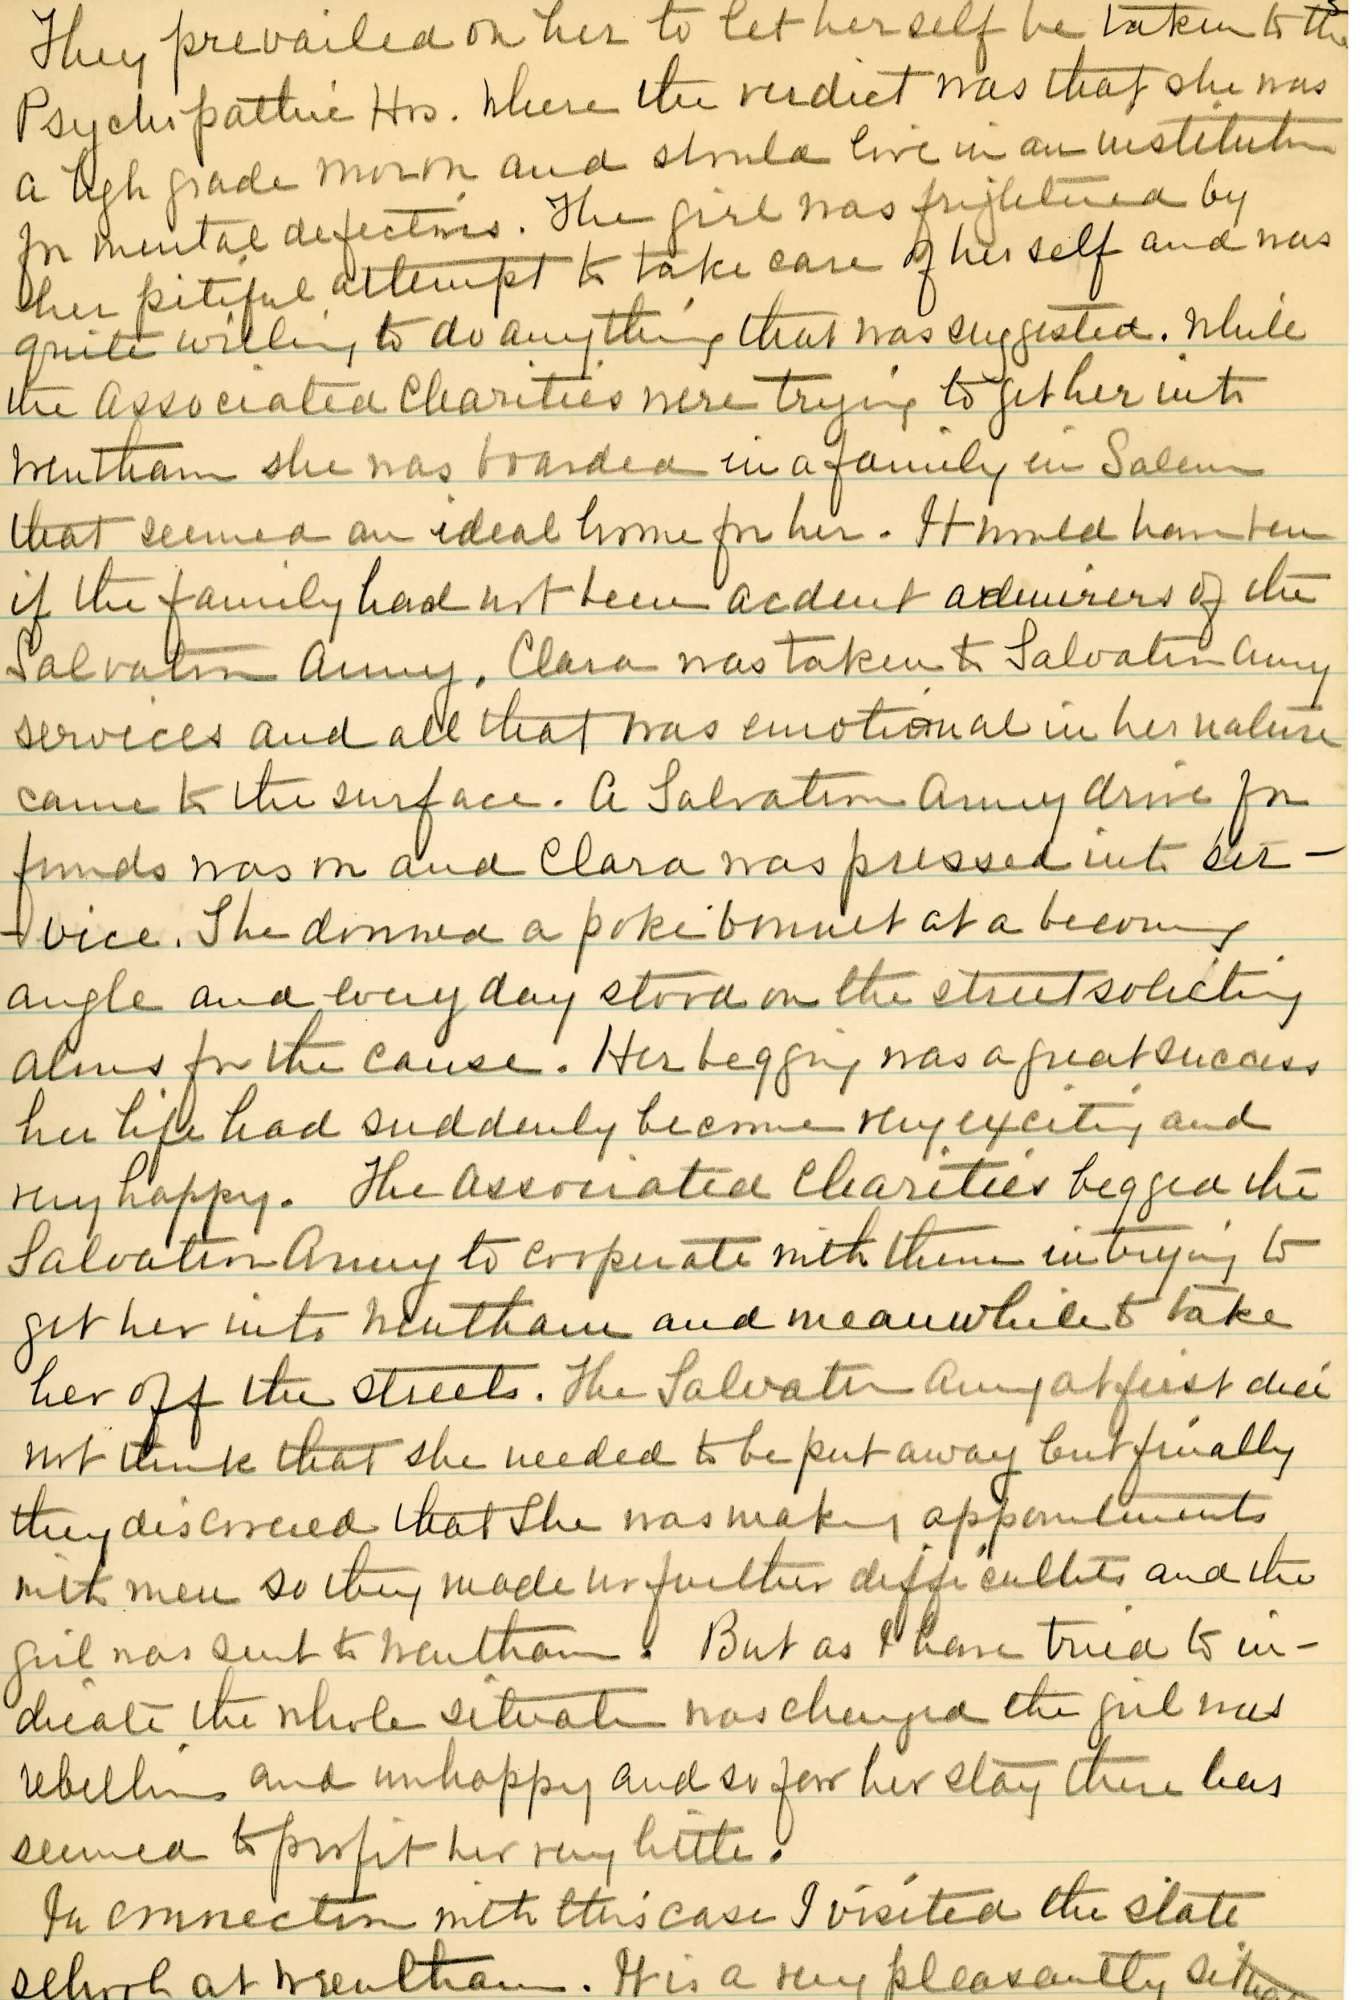 They prevailed on her to let herself be taken to the
Psychopathic Hos. where the verdict was that she was
a high grade moron and should live in an institution
for mental defectives. The girl was frightened by
her pitiful attempt to take care of herself and was
quite willing to do anything that was suggested. While
the Associated Charities were trying to get her into
Wrentham she was boarded in a family in Salem
that seemed an ideal home for her. It would have been
if the family had not been ardent admirers of the
Salvation Army. Clara was taken to Salvation Army
services and all that was emotional in her nature
came to the surface. A Salvation Army drive for
funds was on and Clara was pressed into ser-
-vice. She donned a poke bonnet at a becoming
angle and every day stood on the street soliciting
alms for the cause. Her begging was a great success
her life had suddenly become very exciting and
very happy. The Associated Charities begged the
Salvation Army to cooperate with them in trying to
get her into Wrentham and meanwhile to take
her off the streets. The Salvation Army at first did
not think that she needed to be put away but finally
they discovered that she was making appointments
with men so they made no further difficulties and the
girl was sent to Wrentham. But as I have tried to in-
dicate the whole situation was changed the girl was
rebellious and unhappy and so far her stay there has
seemed to profit her very little.
In connection with this case I visited the state
school at Wrentham. It is a very pleasantly